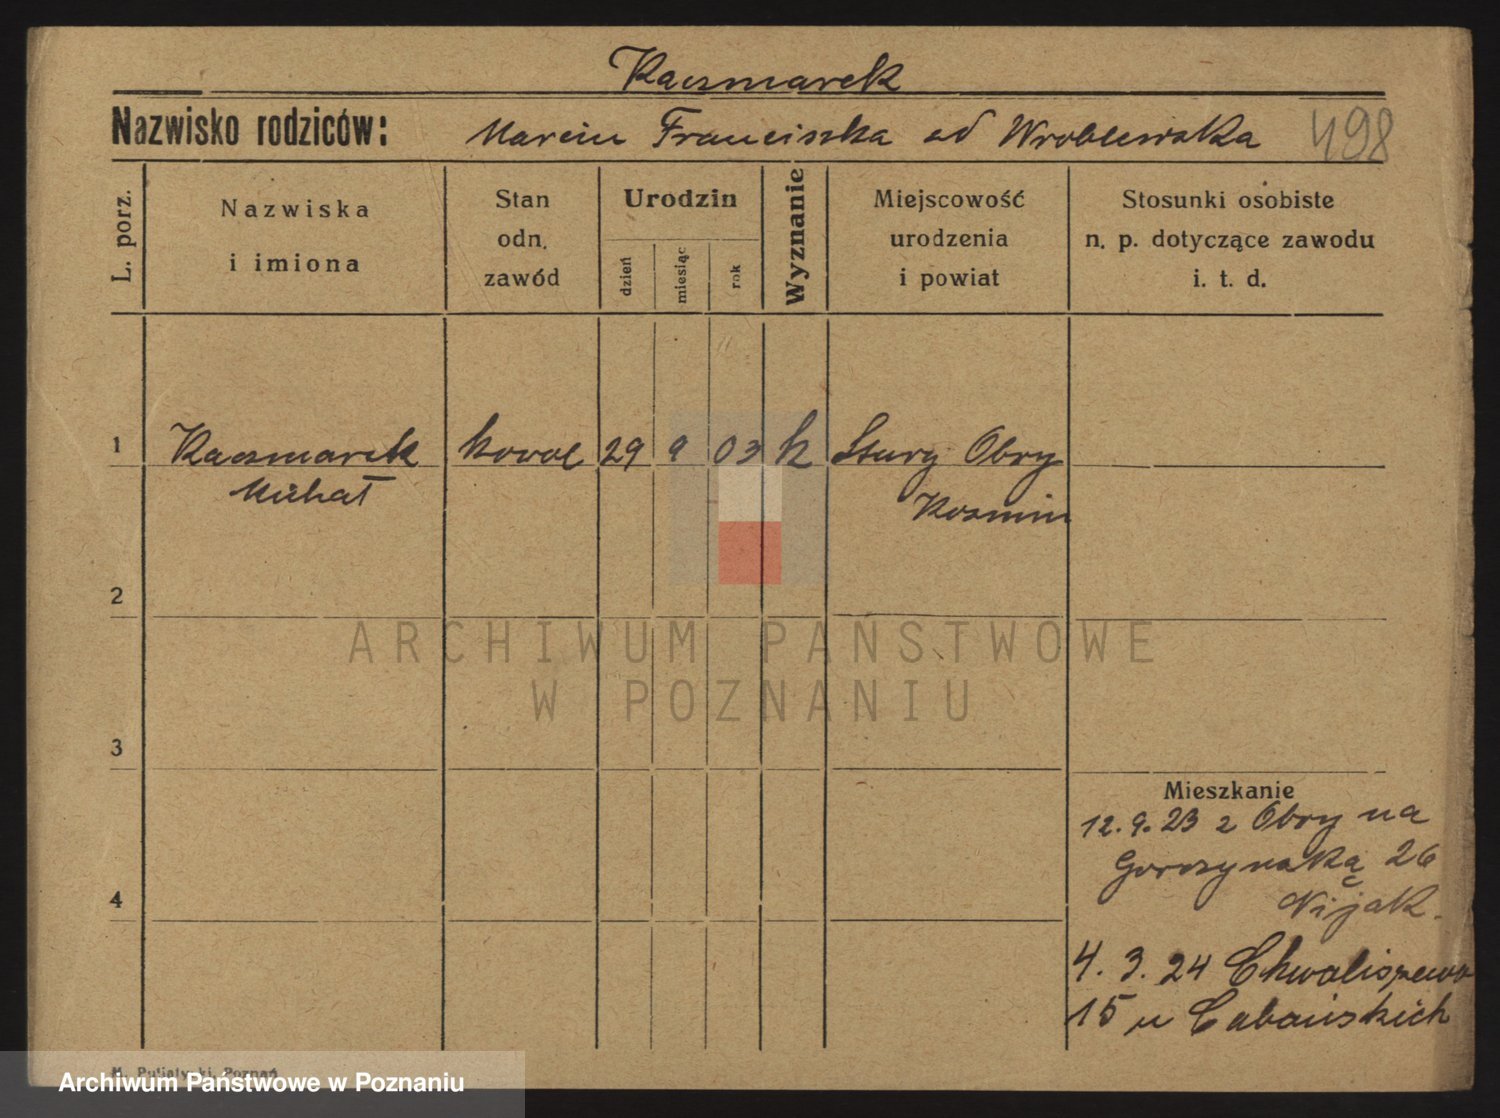 Kaczmarek
Nazwisko rodziców: Marcin Franciszka od Wroblewska 498
L. porz.
Nazwiska
i imiona
Stan
odn.
zawód
Urodzin
dzień
miesiąc
rok
Wyznanie
Miejscowość
urodzenia
i powiat
Stosunki osobiste
n. p. dotyczące zawodu
i. t. d.
1 Kaczmarek kowal 29 9 03 k Stary Obry
Michał Kozmin
2
3
4
Mieszkanie
12. 9. 23 z Obry na
26
Nijak.
4. 3. 24 Chwaliszewo
15 u
ARCHIWUM PAŃSTWOWE
W POZNANIU
Poznań
Archiwum Państwowe w Poznaniu